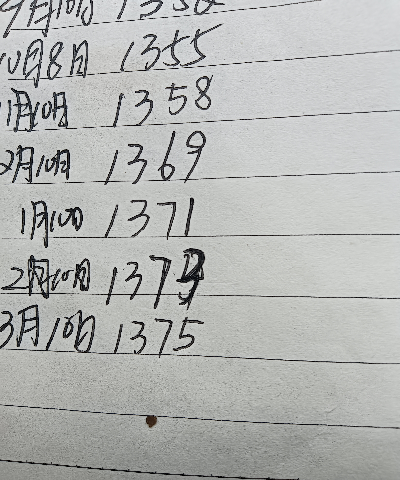 9月10日 135
10月8日 1355
1月10日 1358
2月10日 1369
1月10日 1371
2月10日 1373
3月10日 1375